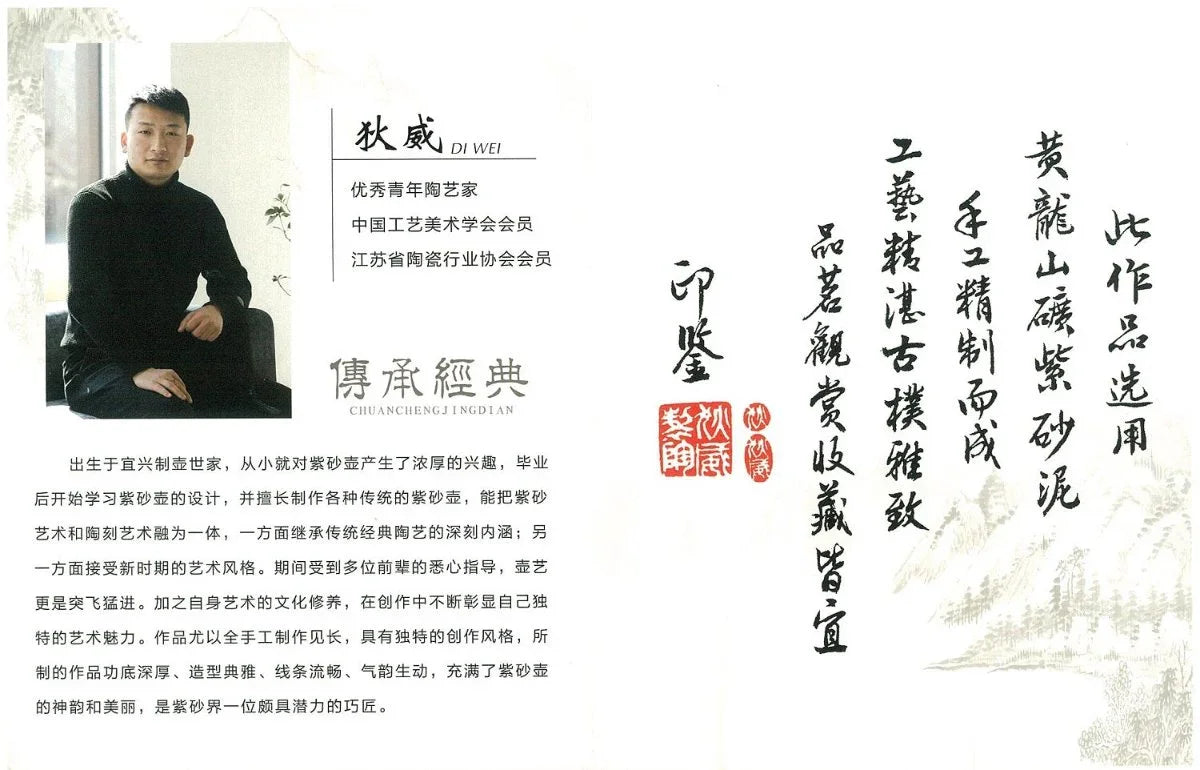 狄威 DI WEI
优秀青年陶艺家
中国工艺美术学会会员
江苏省陶瓷行业协会会员
傳承經典
CHUANCHENGJINGDIAN
出生于宜兴制壶世家，从小就对紫砂壶产生了浓厚的兴趣，毕业
后开始学习紫砂壶的设计，并擅长制作各种传统的紫砂壶，能把紫砂
艺术和陶刻艺术融为一体，一方面继承传统经典陶艺的深刻内涵；另
一方面接受新时期的艺术风格。期间受到多位前辈的悉心指导，壶艺
更是突飞猛进。加之自身艺术的文化修养，在创作中不断彰显自己独
特的艺术魅力。作品尤以全手工制作见长，具有独特的创作风格，所
制的作品功底深厚、造型典雅、线条流畅、气韵生动，充满了紫砂壶
的神韵和美丽，是紫砂界一位颇具潜力的巧匠。
此作品选用
黄龍山礦紫砂泥
手工精制而成
工藝精湛古樸雅致
品茗觀赏收藏皆宜
印鑒
狄威製陶
狄
狄威